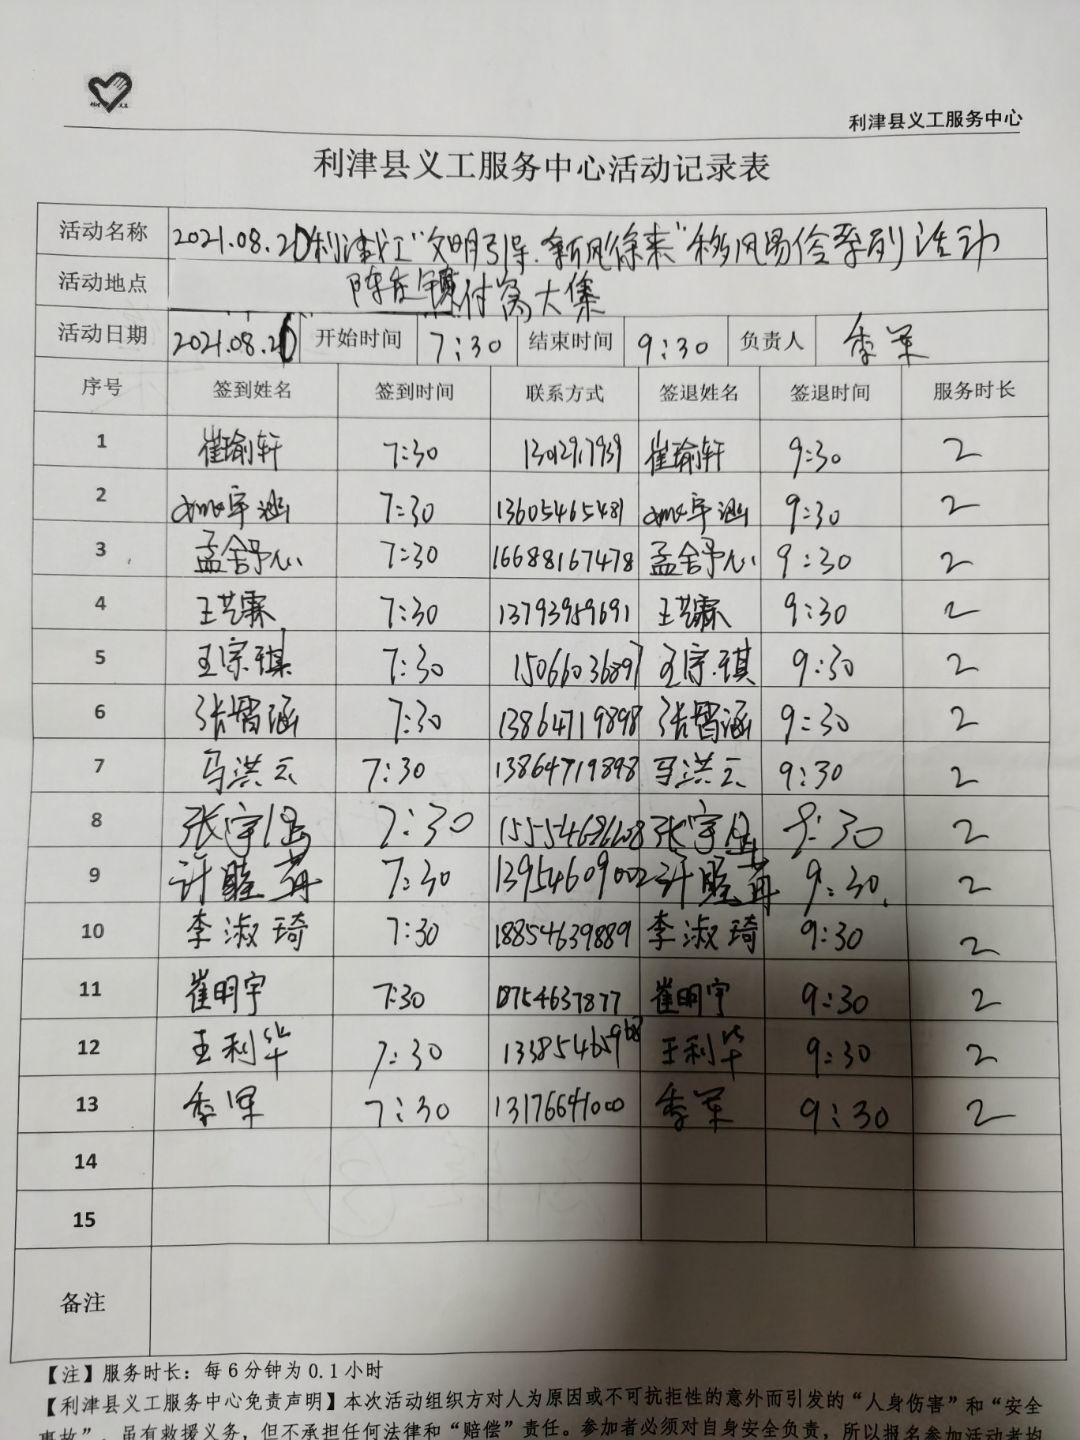 利津县义工服务中心
利津县义工服务中心活动记录表
活动名称 2021.08.20利津义工“文明引导.新风徐来”移风易俗系列活动
活动地点 陈庄镇付窝大集
活动日期 2021.08.20 开始时间 7:30 结束时间 9:30 负责人 李军
序号 签到姓名 签到时间 联系方式 签退姓名 签退时间 服务时长
1 崔瑜轩 7:30 崔瑜轩 9:30 2
2 7:30 13605465481 9:30 2
3 孟舒心 7:30 16688167478 孟舒心 9:30 2
4 王艺霖 7:30 13793959691 王艺霖 9:30 2
5 王宗琪 7:30 15066036897 王宗琪 9:30 2
6 张智涵 7:30 13864719898 张智涵 9:30 2
7 马洪云 7:30 13864719898 马洪云 9:30 2
8 张宇 7:30 张宇 9:30 2
9 许 7:30 13954609002 许 9:30 2
10 李淑琦 7:30 18854639889 李淑琦 9:30 2
11 崔明宇 7:30 18754637877 崔明宇 9:30 2
12 王利华 7:30 王利华 9:30 2
13 李军 7:30 13176641000 李军 9:30 2
14
15
备注
【注】服务时长：每6分钟为0.1小时
【利津县义工服务中心免责声明】本次活动组织方对人为原因或不可抗拒性的意外而引发的“人身伤害”和“安全
事故”，虽有救援义务，但不承担任何法律和“赔偿”责任。参加者必须对自身安全负责，所以报名参加活动者均